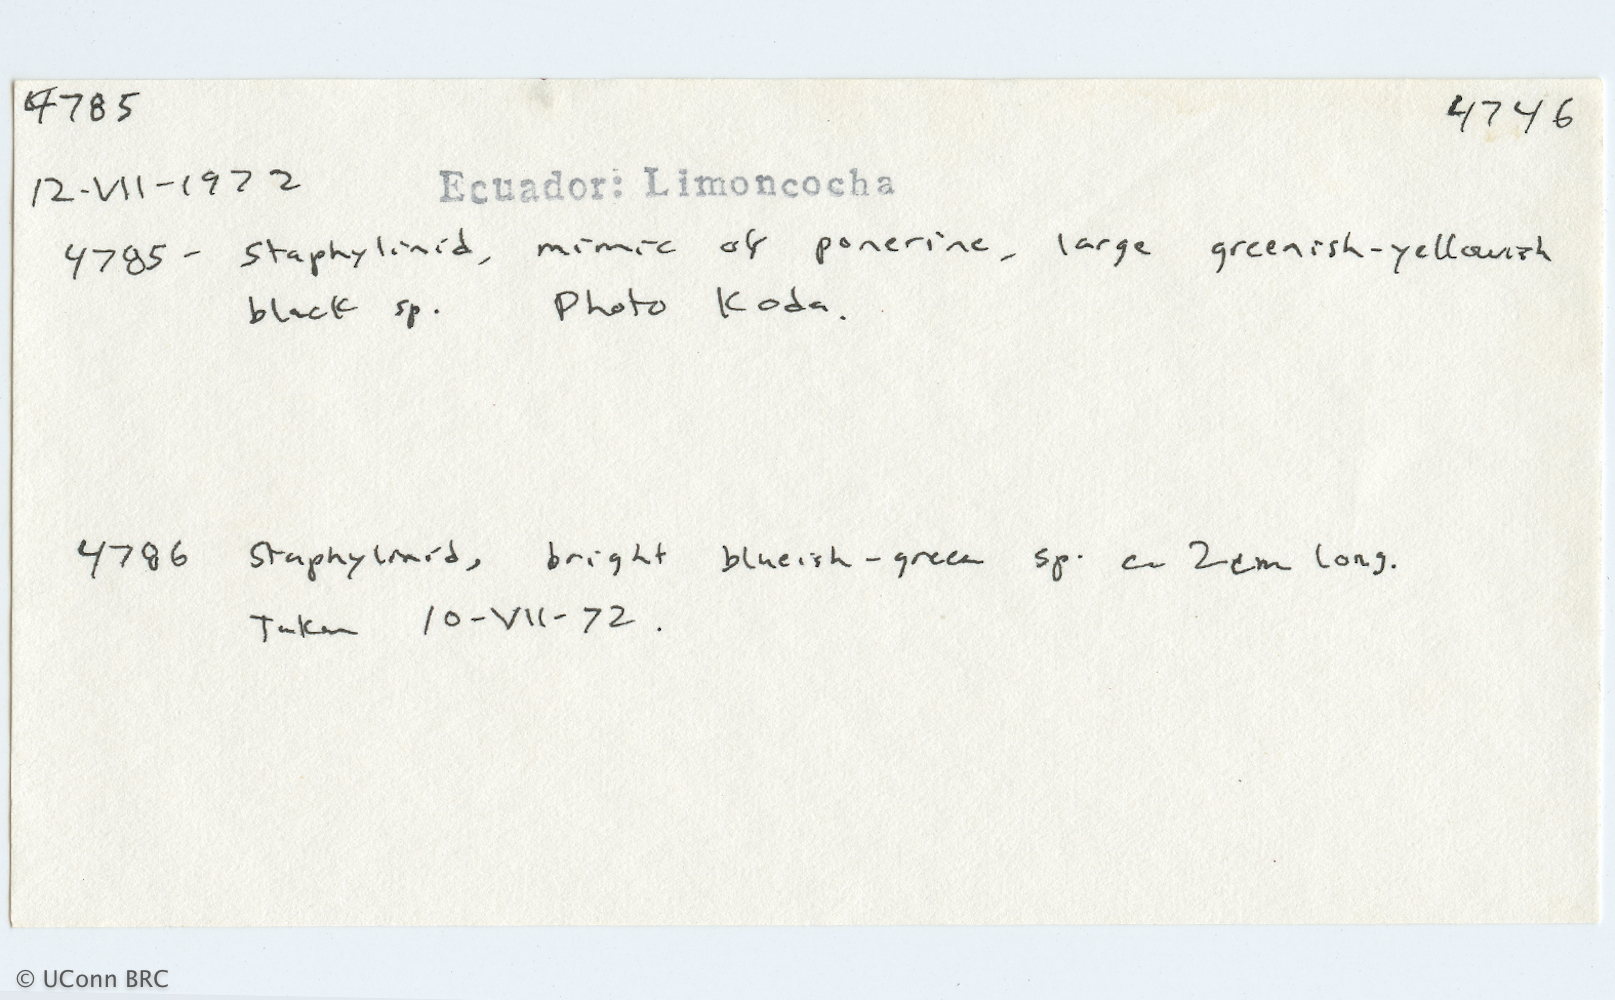 4785 4746
12-VII-1972 Ecuador: Limoncocha
4785- Staphylinid, mimic of ponerine, large greenish-yellowish
black sp. Photo Koda.
4786 Staphylinid, bright blueish-green sp. ca 2cm long.
Taken 10-VII-72.
© UConn BRC